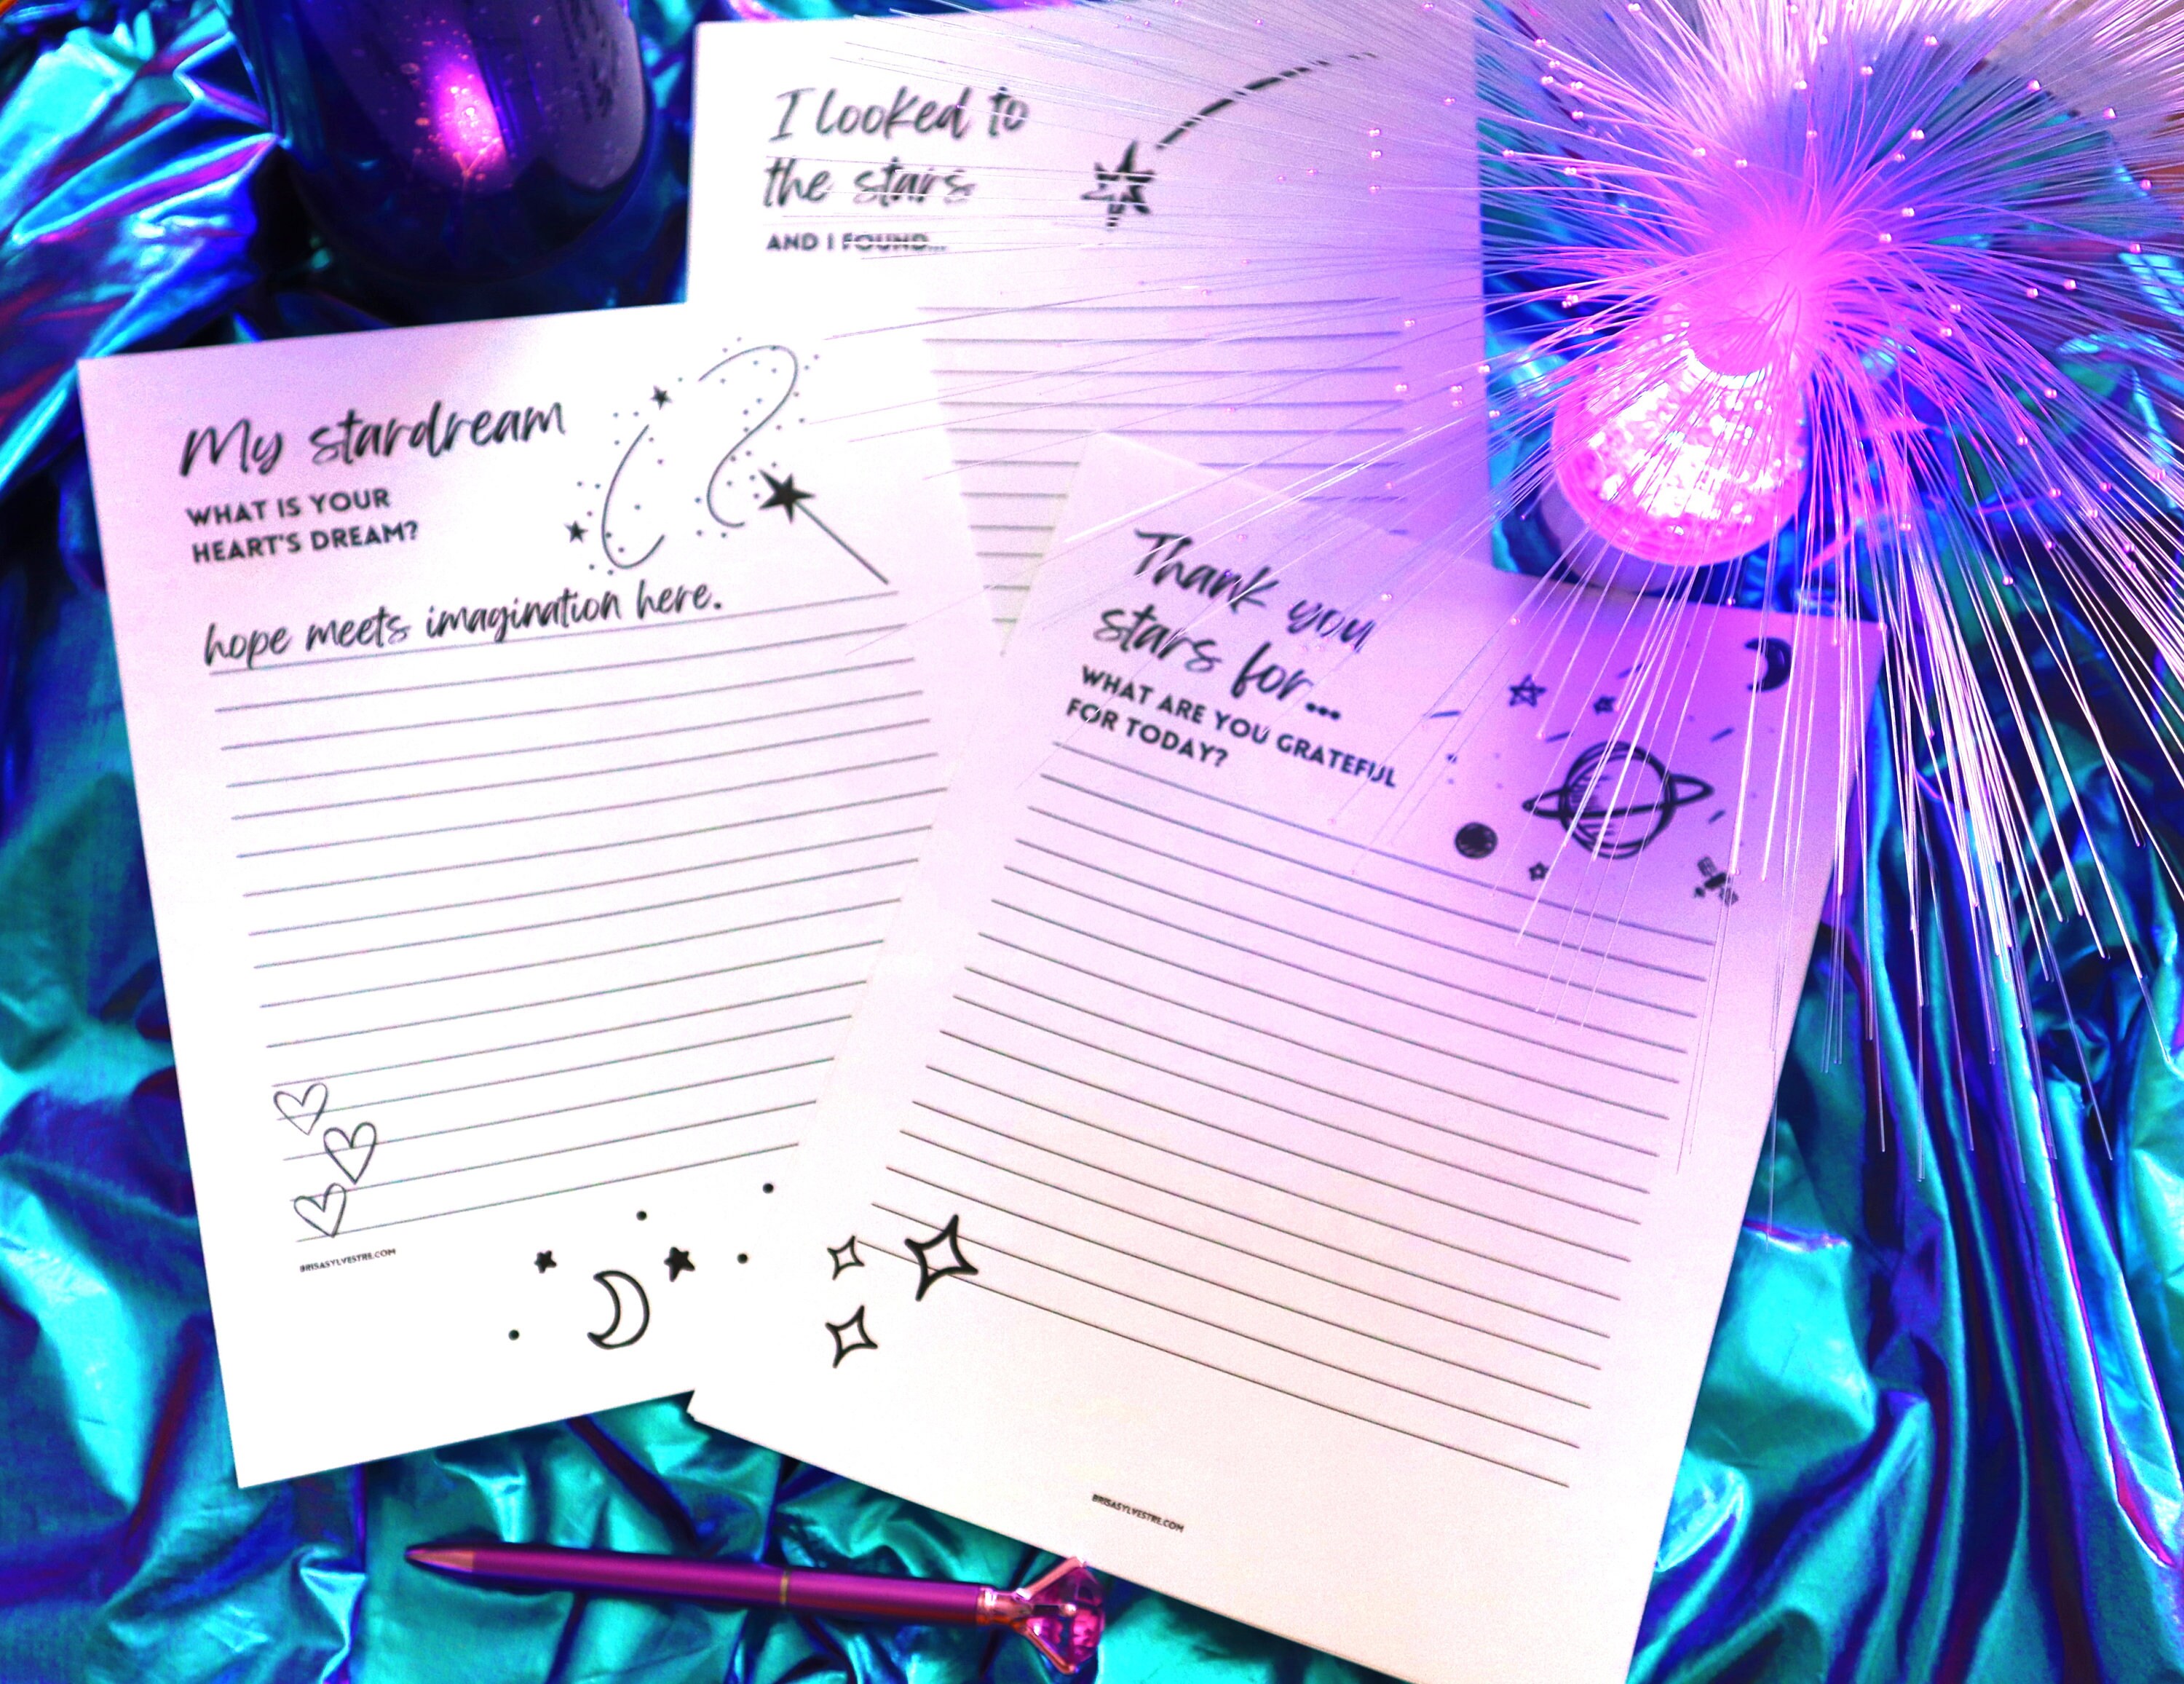 I looked to
the stars
AND I FOUND...
My stardream
WHAT IS YOUR
HEART'S DREAM?
hope meets imagination here.
BRISASYLVESTRE.COM
Thank you
stars for...
WHAT ARE YOU GRATEFUL
FOR TODAY?
BRISASYLVESTRE.COM